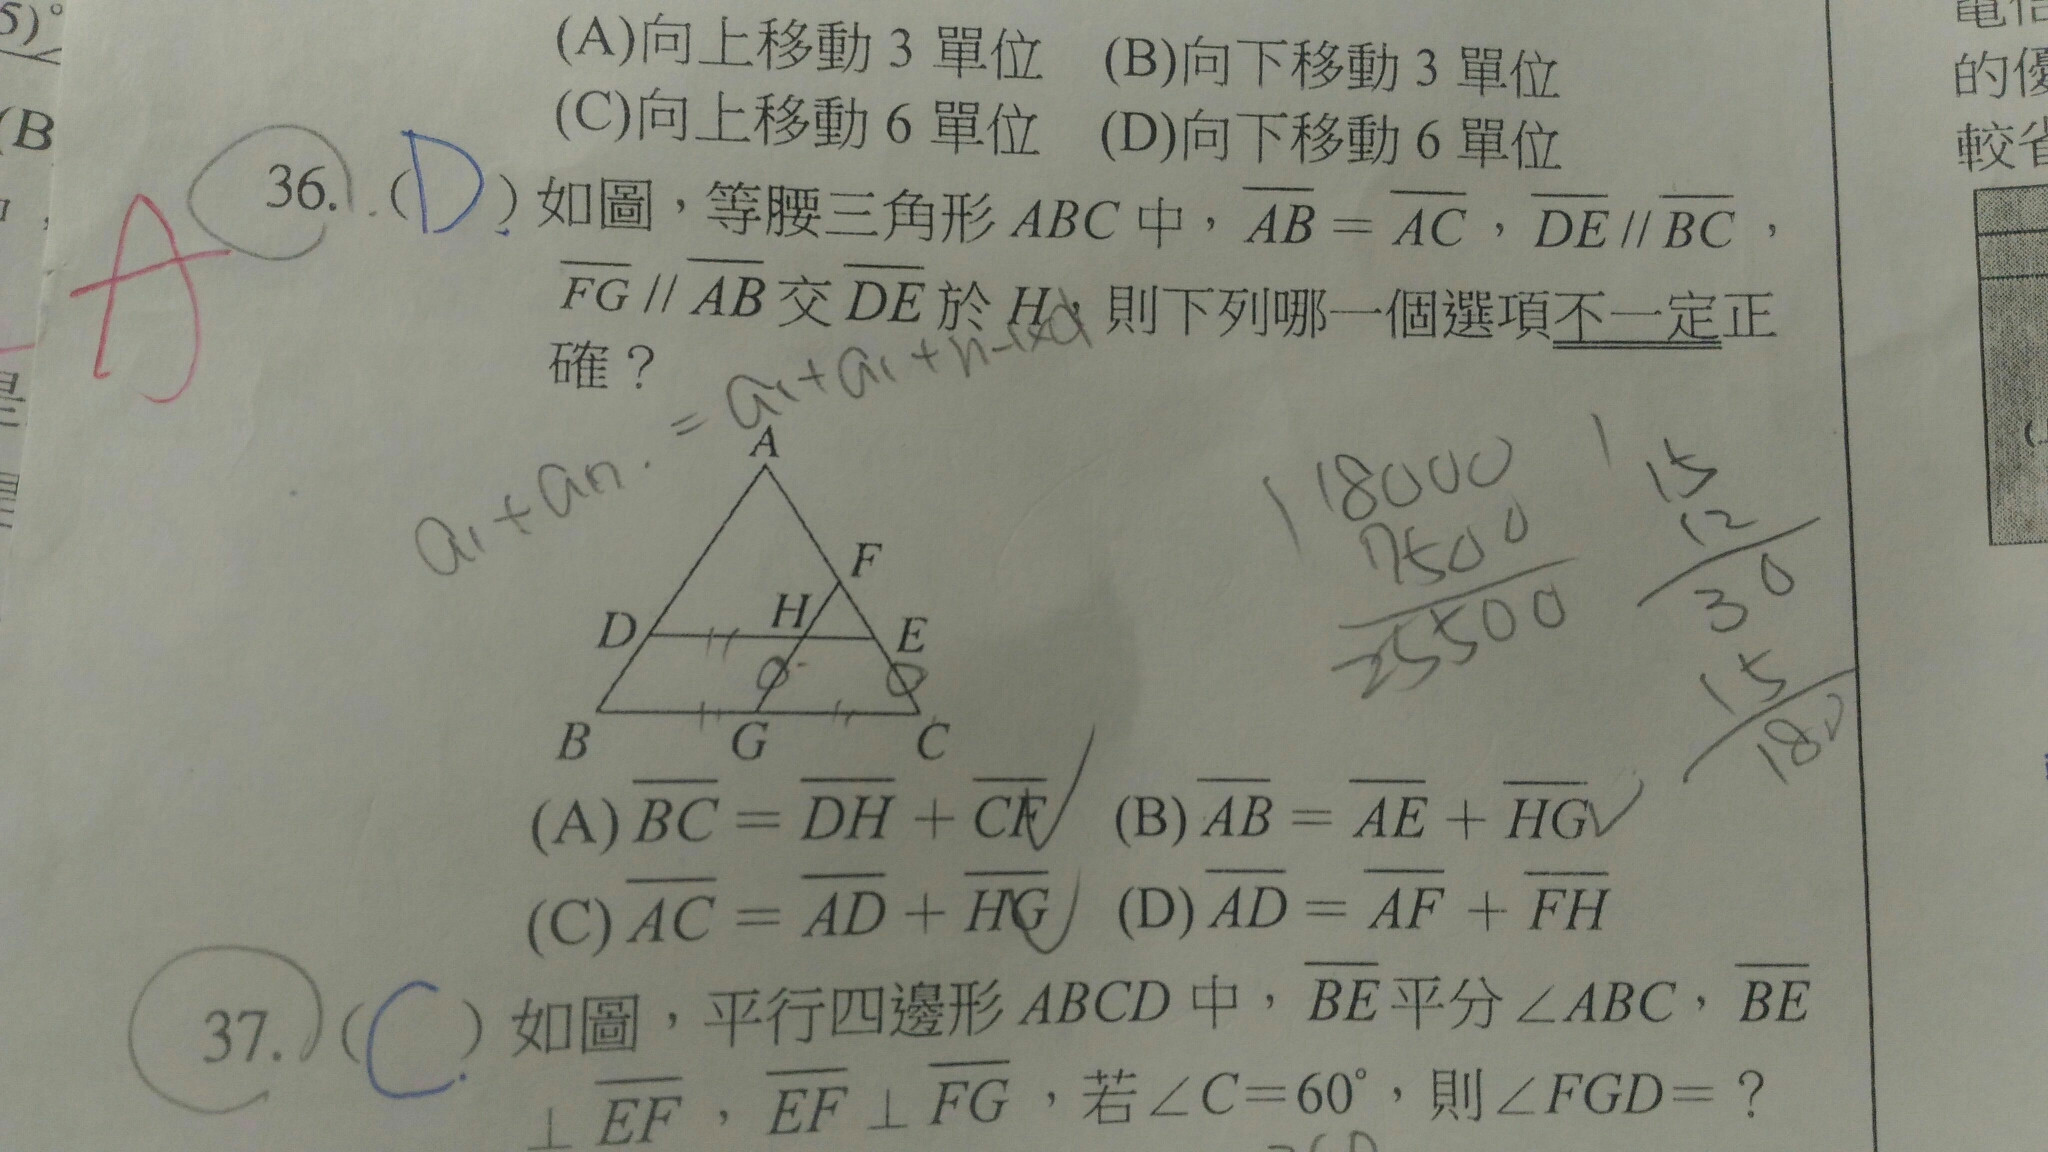 5)°
(A)向上移動 3 單位 (B)向下移動 3 單位
(C)向上移動 6 單位 (D)向下移動 6 單位
(B
的優
較省
A
36. (D) 如圖，等腰三角形 ABC 中，AB = AC，DE // BC，
FG // AB 交 DE 於 H，則下列哪一個選項不一定正
確？
a₁+an = a₁+a₁+n-1×d
A
F
D H E
B G C
18000
7500
25500
15
12
30
15
180
(A) BC = DH + CF (B) AB = AE + HG
(C) AC = AD + HG (D) AD = AF + FH
37. (C) 如圖，平行四邊形 ABCD 中，BE 平分∠ABC，BE
⊥ EF，EF ⊥ FG，若∠C=60°，則∠FGD=？